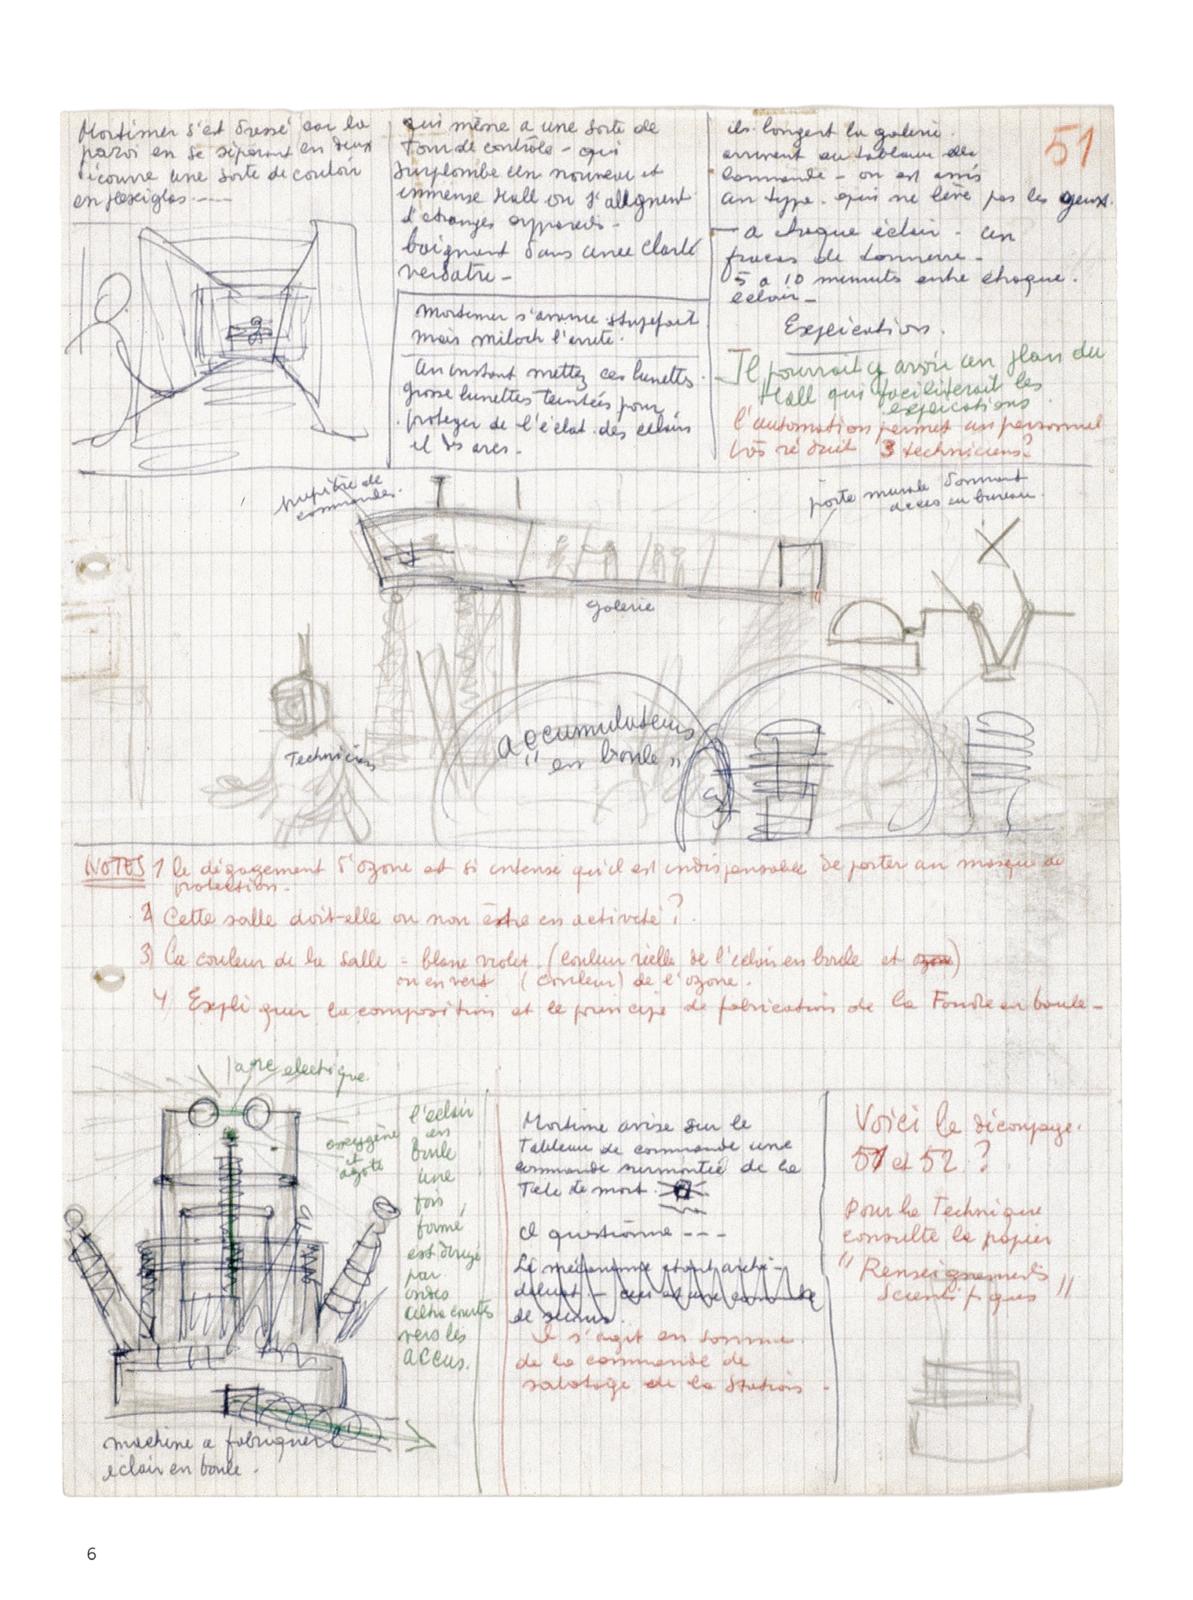 51
Mortimer s'est dressé car la
paroi en se séparant en deux
découvre une sorte de couloir
en plexiglas ----
qui mène a une sorte de
Tour de contrôle - qui
surplombe un nouveau et
immense Hall ou s'alignent
d'étranges appareils -
baignant dans une clarté
verdatre -
Mortimer s'avance stupefait
mais miloch l'arrete.
Un instant mettez ces lunettes.
grosse lunettes teintées pour
proteger de l'éclat des éclairs
et des arcs.
ils longent la galerie.
arrivent au tableau de
commande - on est
au type qui ne lève pas les yeux.
- a chaque éclair - un
fracas de tonnerre -
5 a 10 minuts entre chaque
éclair -
Explication.
Il pourrait y avoir un plan du
Hall qui faciliterait les
explications
l'automation permet un personnel
très réduit 3 techniciens?
pupitre de
commandes.
porte murale donnant
acces au bureau.
galerie
Technicien
accumulateurs
"en boule"
NOTES 1 le dégagement d'ozone est si intense qu'il est indispensable de porter un masque de
protection.
2 Cette salle doit-elle ou non être en activité?
3) La couleur de la salle - blanc violet. (couleur réelle de l'éclair en boule et ozone)
ou en vert (couleur) de l'ozone.
4 Expliquer la composition et le principe de fabrication de la Foudre en boule -
arc electrique.
oxygène
et
azote
l'éclair
en
boule
une
fois
formé
est dirigé
par
ondes
ultra courtes
vers les
accus.
machine a fabriquer l'
éclair en boule.
Mortimer avise sur le
Tableau de commande une
commande surmontée de la
Tete de mort.
Il questionne ---
Le mécanisme etant
de secours.
Il s'agit en somme
de la commande de
sabotage de la station -
Voici le découpage.
51 et 52 ?
Pour la Technique
consulte le papier
"Renseignements
Scientifiques"
6